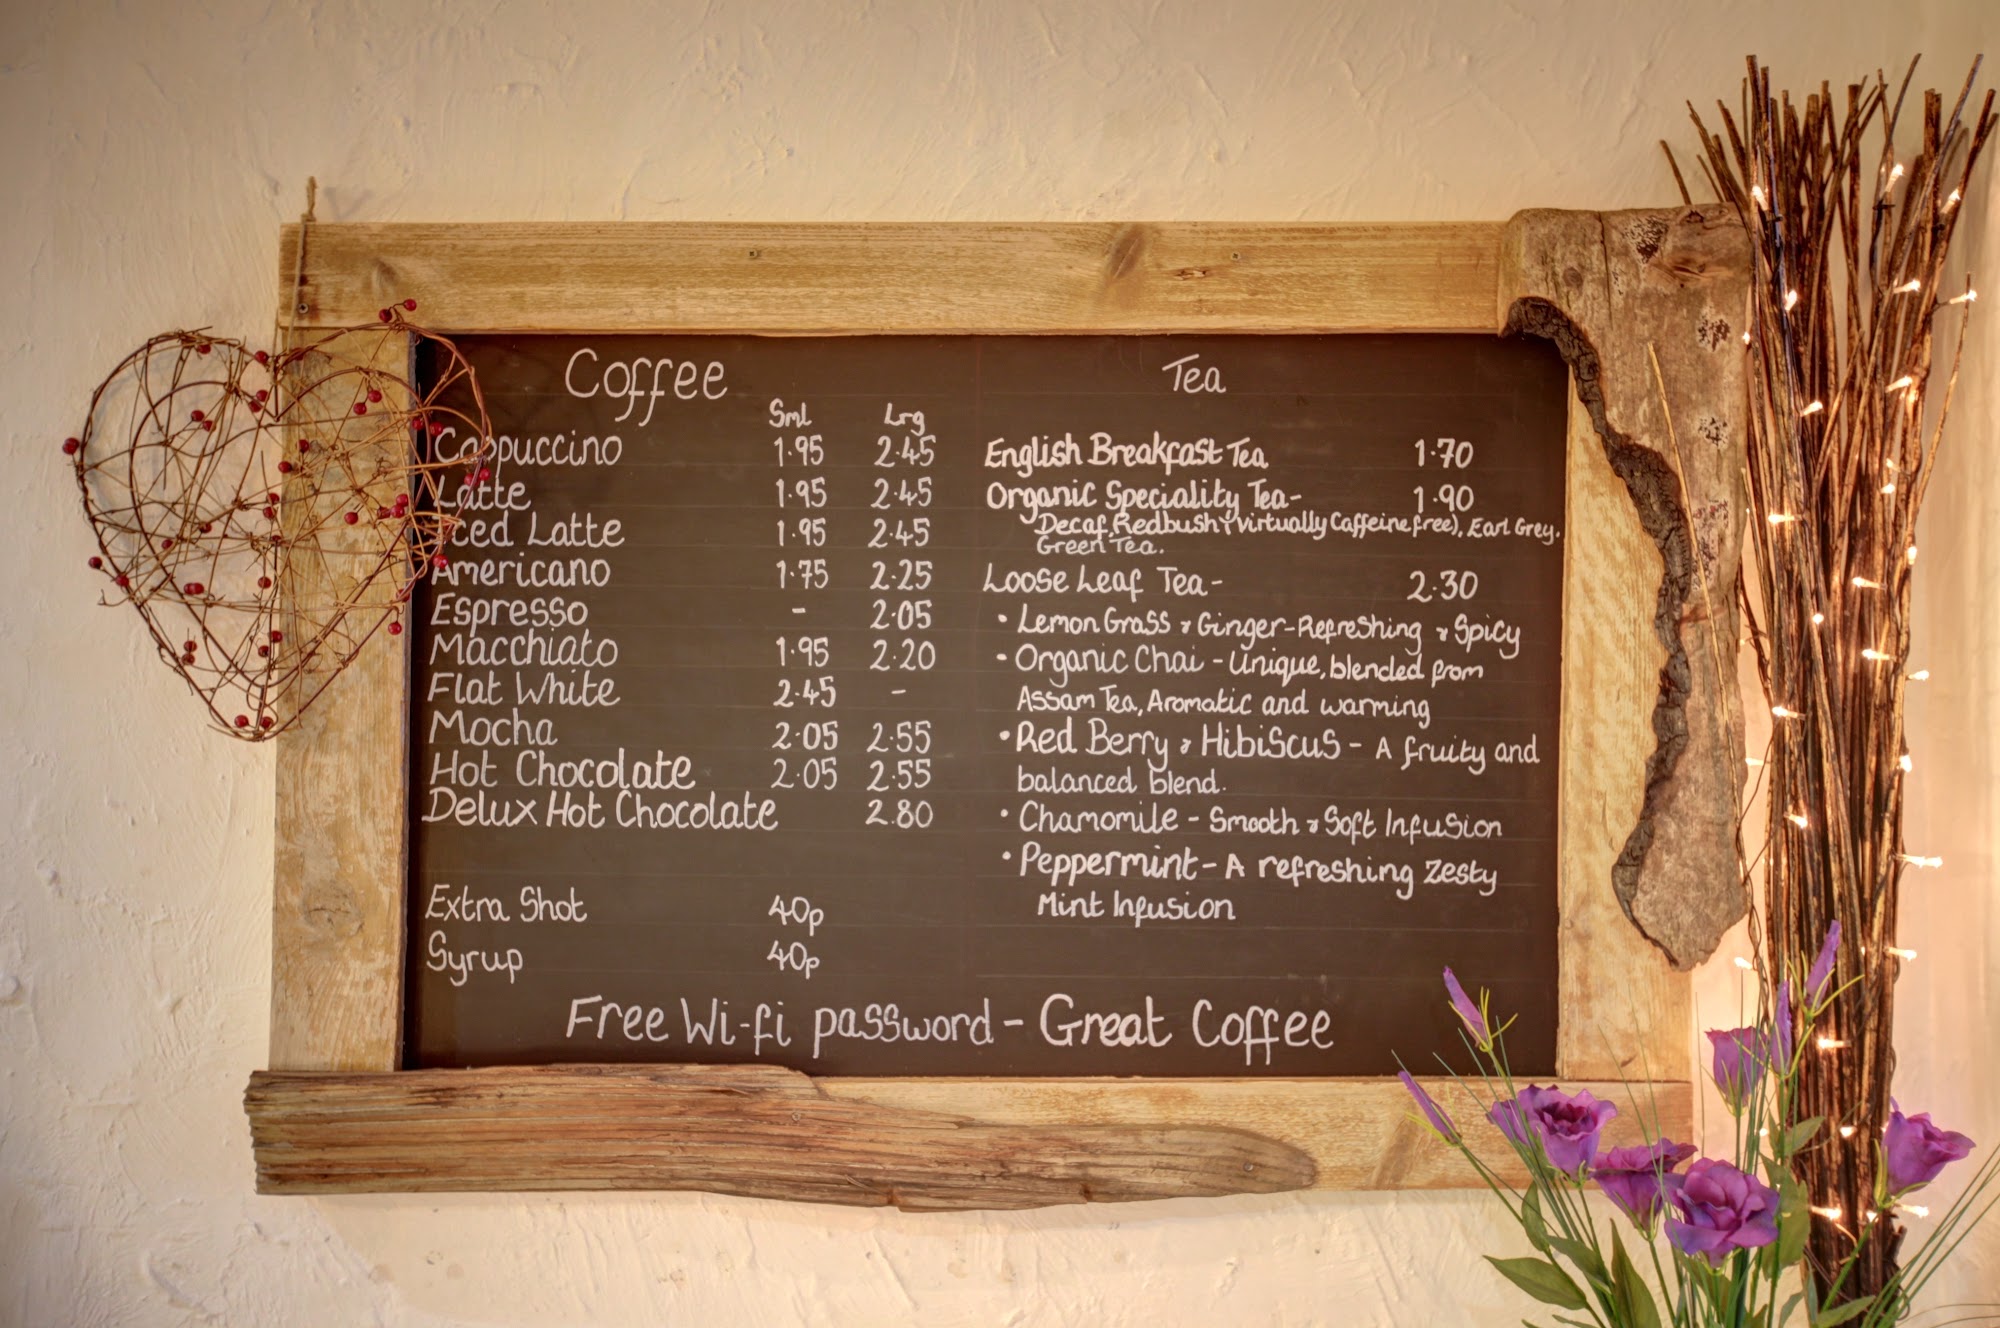 Coffee
Sml Lrg
Cappuccino 1.95 2.45
Latte 1.95 2.45
Iced Latte 1.95 2.45
Americano 1.75 2.25
Espresso - 2.05
Macchiato 1.95 2.20
Flat White 2.45 -
Mocha 2.05 2.55
Hot Chocolate 2.05 2.55
Delux Hot Chocolate 2.80
Extra Shot 40p
Syrup 40p
Tea
English Breakfast Tea 1.70
Organic Speciality Tea- 1.90
Decaf, Redbush (virtually Caffeine free), Earl Grey.
Green Tea.
Loose Leaf Tea - 2.30
• Lemon Grass & Ginger - Refreshing & Spicy
• Organic Chai - Unique, blended from
Assam Tea, Aromatic and warming
• Red Berry & Hibiscus - A fruity and
balanced blend.
• Chamomile - Smooth & Soft Infusion
• Peppermint - A refreshing Zesty
Mint Infusion
Free Wi-fi password - Great Coffee